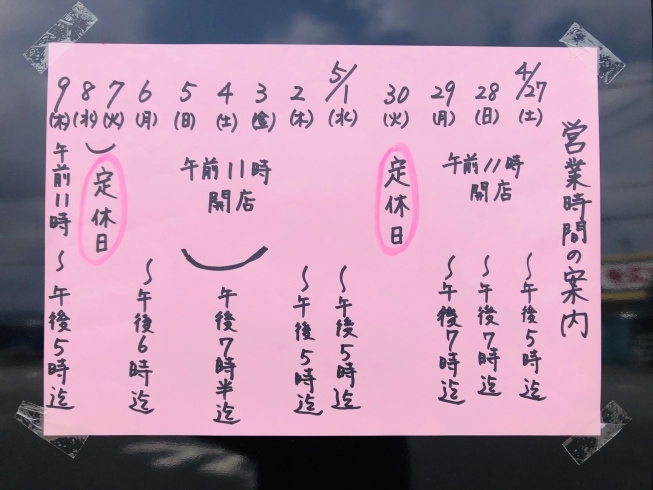 営業時間の案内
4/27 28 29 30 5/1 2 3 4 5 6 7 8 9
(土) (日) (月) (火) (水) (木) (金) (土) (日) (月) (火) (水) (木)
午前11時
開店
〜午後5時迄
〜午後7時迄
〜午後7時迄
定休日
〜午後5時迄
〜午後5時迄
午前11時
開店
午後7時半迄
〜午後6時迄
定休日
午前11時〜午後5時迄